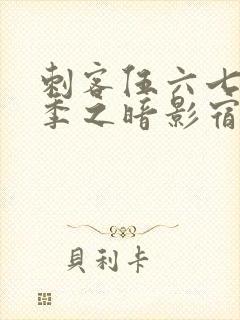 刺客伍六七
季之暗影宿
貝利卡